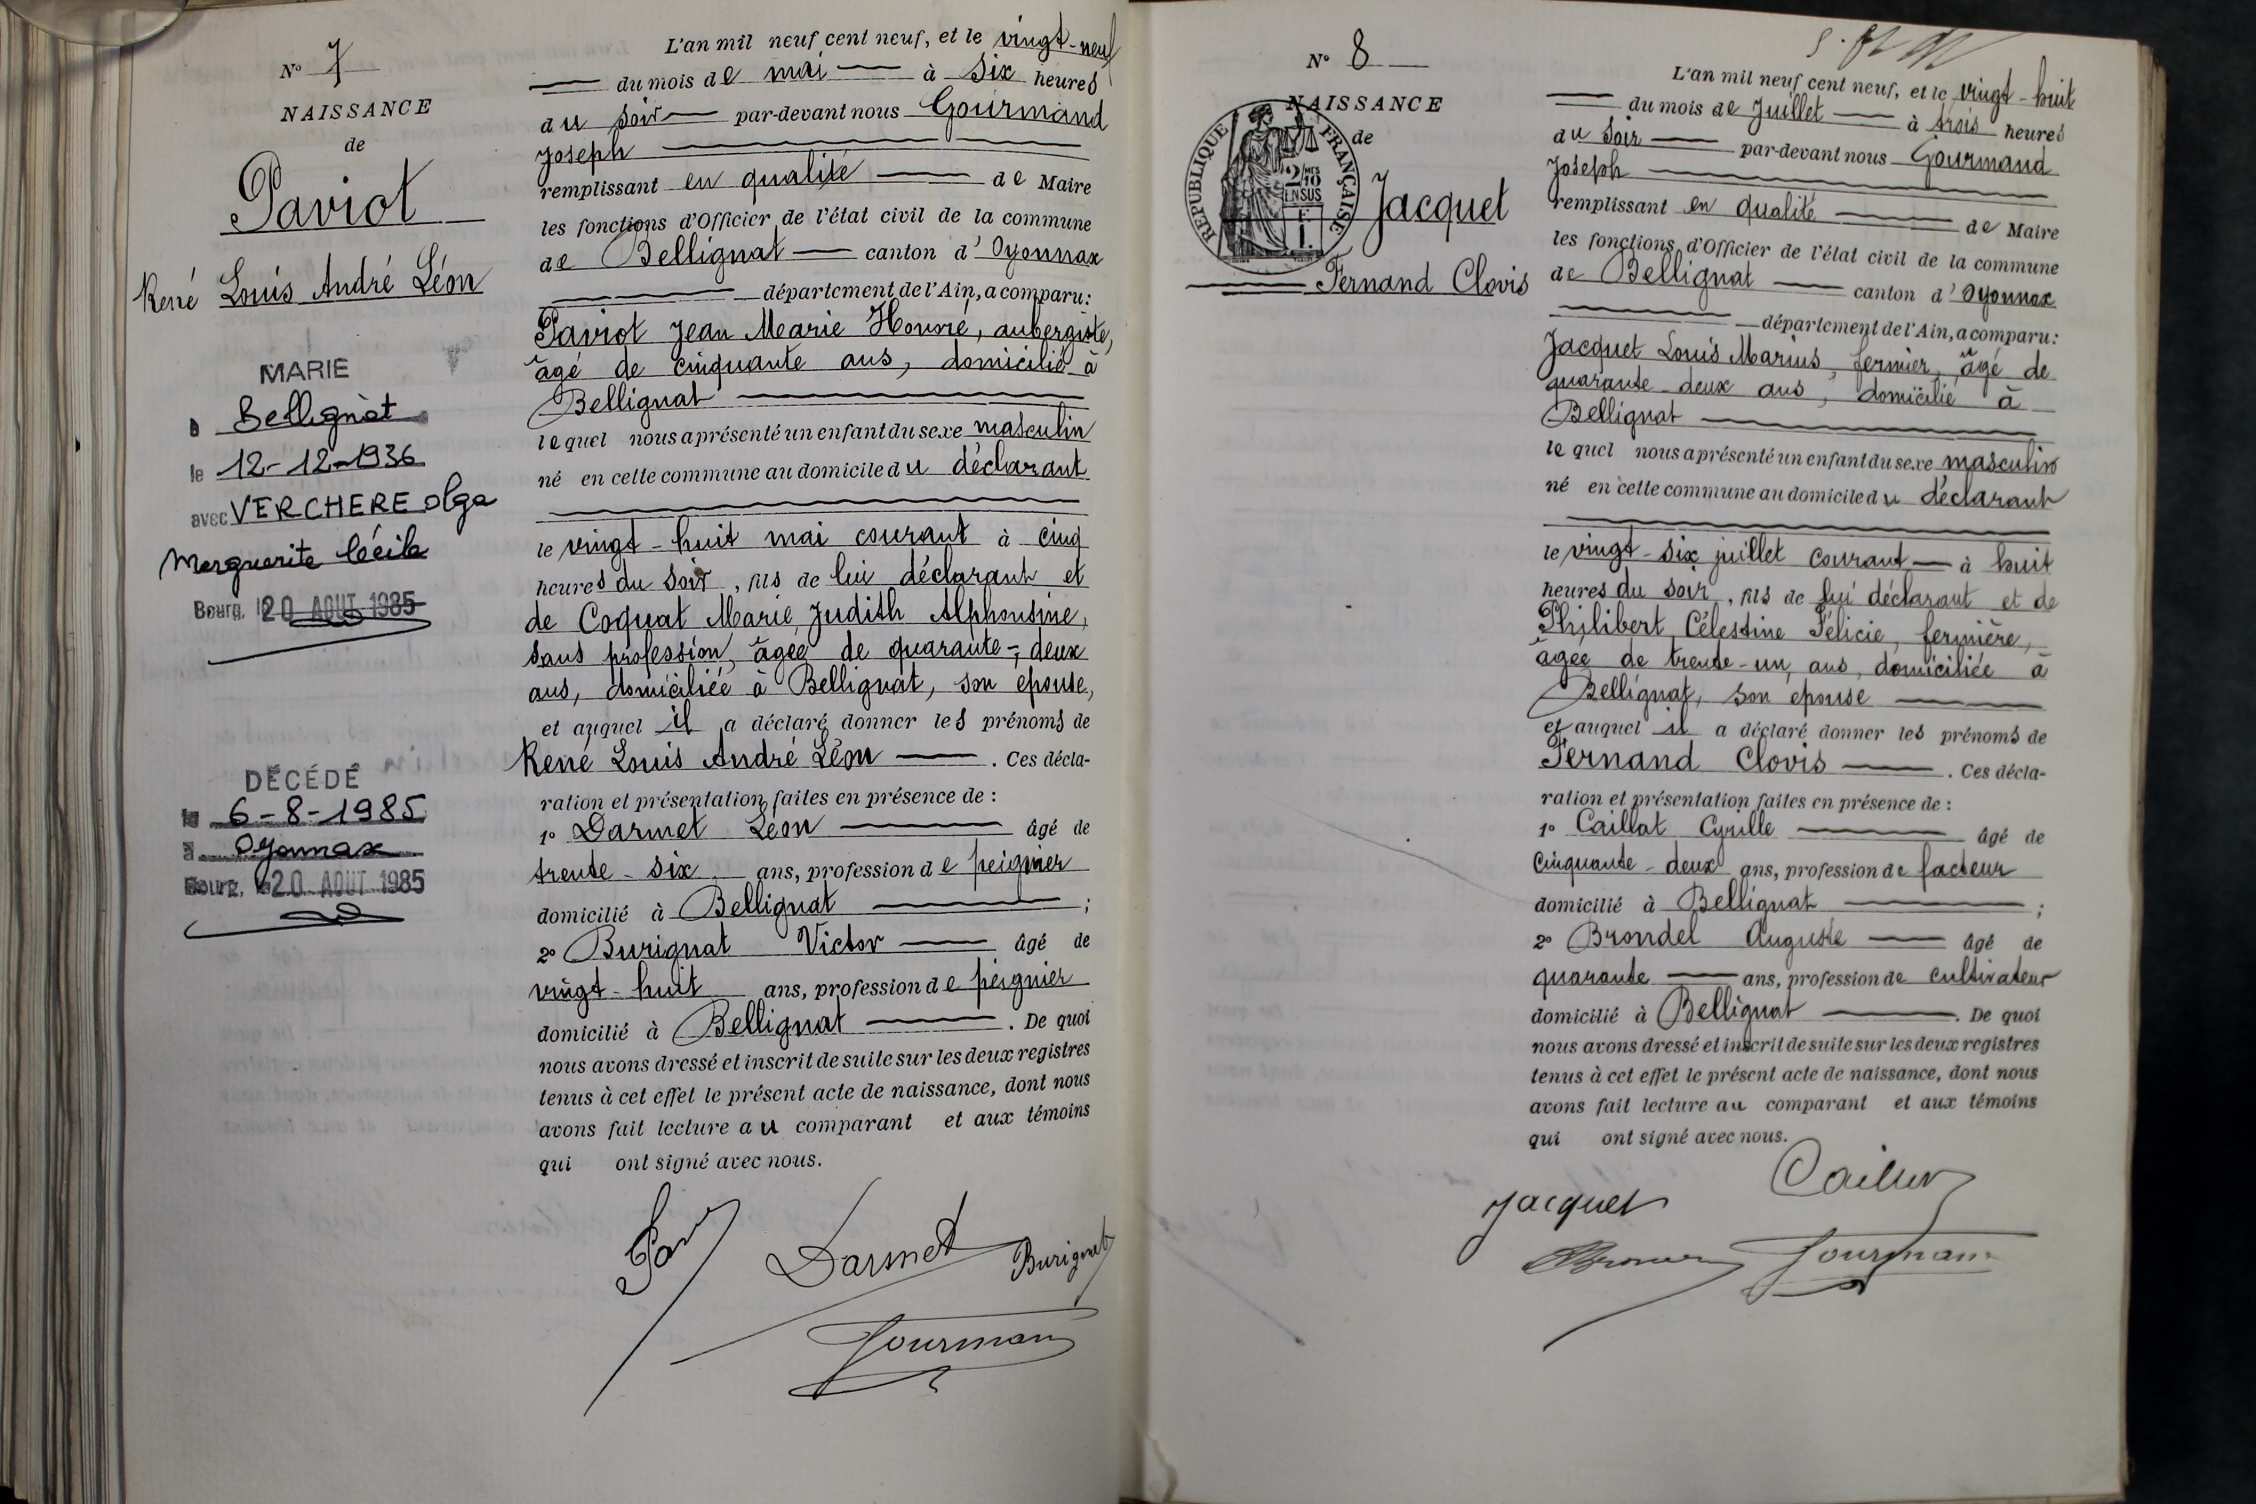 N° 7
NAISSANCE
de
Paviot
René Louis André Léon
MARIE
à Bellignat
le 12-12-1936
avec VERCHERE Olga
Marguerite Cécile
Bourg, le 20 AOUT 1985
DÉCÉDÉ
le 6-8-1985
à Oyonnax
Bourg, le 20 AOUT 1985
L'an mil neuf cent neuf, et le vingt-neuf
du mois de mai à six heures
du soir par-devant nous Gourmand
Joseph
remplissant en qualité de Maire
les fonctions d'Officier de l'état civil de la commune
de Bellignat canton d'Oyonnax
département de l'Ain, a comparu:
Paviot Jean Marie Honoré, aubergiste,
âgé de cinquante ans, domicilié à
Bellignat
lequel nous a présenté un enfant du sexe masculin
né en cette commune au domicile du déclarant
le vingt-huit mai courant à cinq
heures du soir, fils de lui déclarant et
de Coquat Marie Judith Alphonsine,
sans profession, âgée de quarante-deux
ans, domiciliée à Bellignat, son épouse,
et auquel il a déclaré donner les prénoms de
René Louis André Léon. Ces décla-
ration et présentation faites en présence de :
1° Darmet Léon âgé de
trente-six ans, profession de peignier
domicilié à Bellignat ;
2° Burignat Victor âgé de
vingt-huit ans, profession de peignier
domicilié à Bellignat. De quoi
nous avons dressé et inscrit de suite sur les deux registres
tenus à cet effet le présent acte de naissance, dont nous
avons fait lecture au comparant et aux témoins
qui ont signé avec nous.
Darmet Burignat
Gourmand
N° 8
NAISSANCE
de
RÉPUBLIQUE FRANÇAISE
2/10
EN SUS
Jacquet
Fernand Clovis
L'an mil neuf cent neuf, et le vingt-huit
du mois de Juillet à trois heures
du soir par-devant nous Gourmand
Joseph
remplissant en qualité de Maire
les fonctions d'Officier de l'état civil de la commune
de Bellignat canton d'Oyonnax
département de l'Ain, a comparu:
Jacquet Louis Marius, fermier, âgé de
quarante-deux ans, domicilié à
Bellignat
lequel nous a présenté un enfant du sexe masculin
né en cette commune au domicile du déclarant
le vingt-six juillet courant à huit
heures du soir, fils de lui déclarant et de
Philibert Célestine Félicie, fermière,
âgée de trente-un ans, domiciliée à
Bellignat, son épouse
et auquel il a déclaré donner les prénoms de
Fernand Clovis. Ces décla-
ration et présentation faites en présence de :
1° Caillat Cyrille âgé de
cinquante-deux ans, profession de facteur
domicilié à Bellignat ;
2° Brondel Auguste âgé de
quarante ans, profession de cultivateur
domicilié à Bellignat. De quoi
nous avons dressé et inscrit de suite sur les deux registres
tenus à cet effet le présent acte de naissance, dont nous
avons fait lecture au comparant et aux témoins
qui ont signé avec nous.
Jacquet
Gourmand